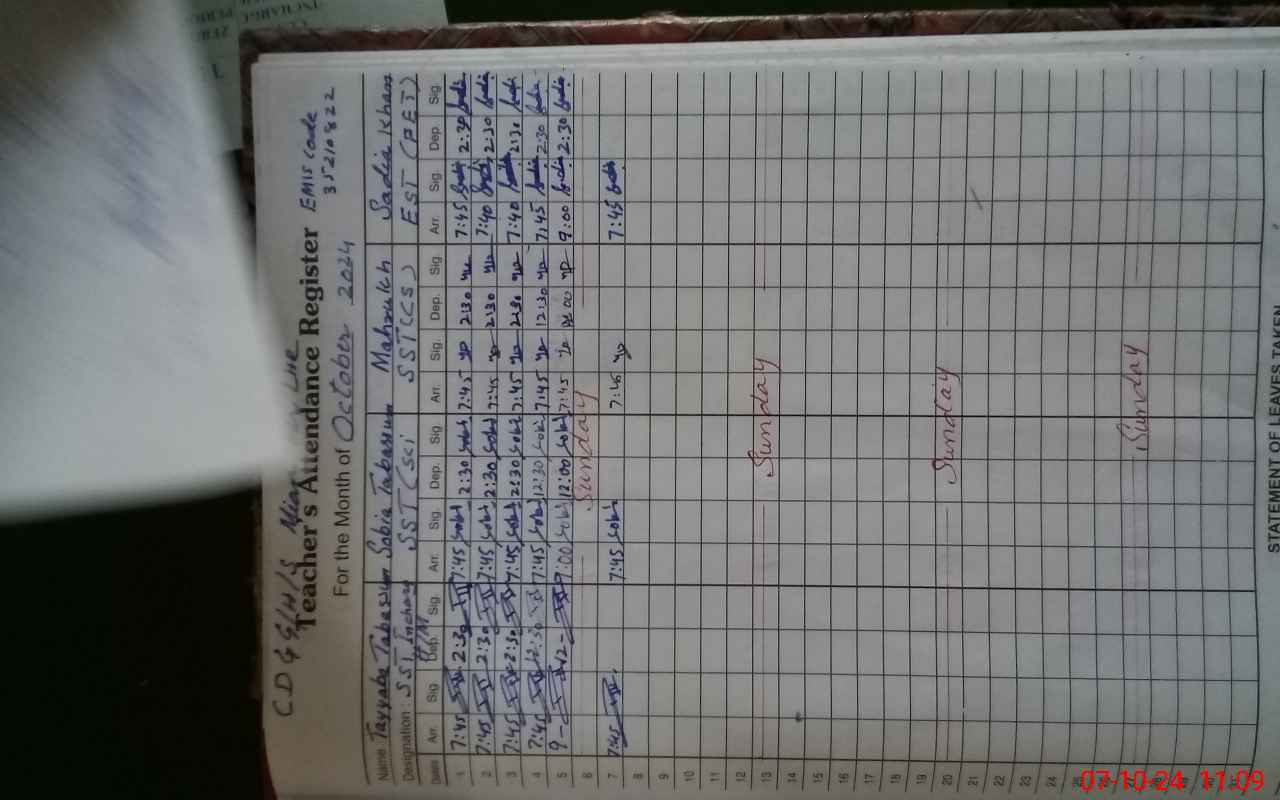 CDGG/H/S
Teacher's Attendance Register EMIS Code
35210822
For the Month of October 2024
Name Tayyaba Tabassum Sobia Tabassum Mahrukh Sadia Khan
Designation: SST Incharge SST (sci SST (CS) EST (PET)
H/M
Dates Arr. Sig. Dep. Sig. Arr. Sig. Dep. Sig. Arr. Sig. Dep. Sig. Arr. Sig. Dep. Sig.
1 7:45 2:30 7:45 Sobi 2:30 Sobi 7:45 2:30 7:45 Sadia 2:30 Sadia
2 7:45 2:30 7:45 Sobi 2:30 Sobi 7:45 2:30 7:40 Sadia 2:30 Sadia
3 7:45 2:30 7:45 Sobi 2:30 Sobi 7:45 2:30 7:40 Sadia 2:30 Sadia
4 7:45 12:30 7:45 Sobi 12:30 Sobi 7:45 12:30 7:45 Sadia 2:30 Sadia
5 9- 12- 9:00 Sobi 12:00 Sobi 7:45 12:00 9:00 Sadia 2:30 Sadia
6 Sunday
7 7:45 7:45 Sobi 7:45 Sadia
8
9
10
11
12
13 Sunday
14
15
16
17
18
19
20 Sunday
21
22
23
24
25
26
27 Sunday
28
29
30
31
STATEMENT OF LEAVES TAKEN
07-10-24 11:09